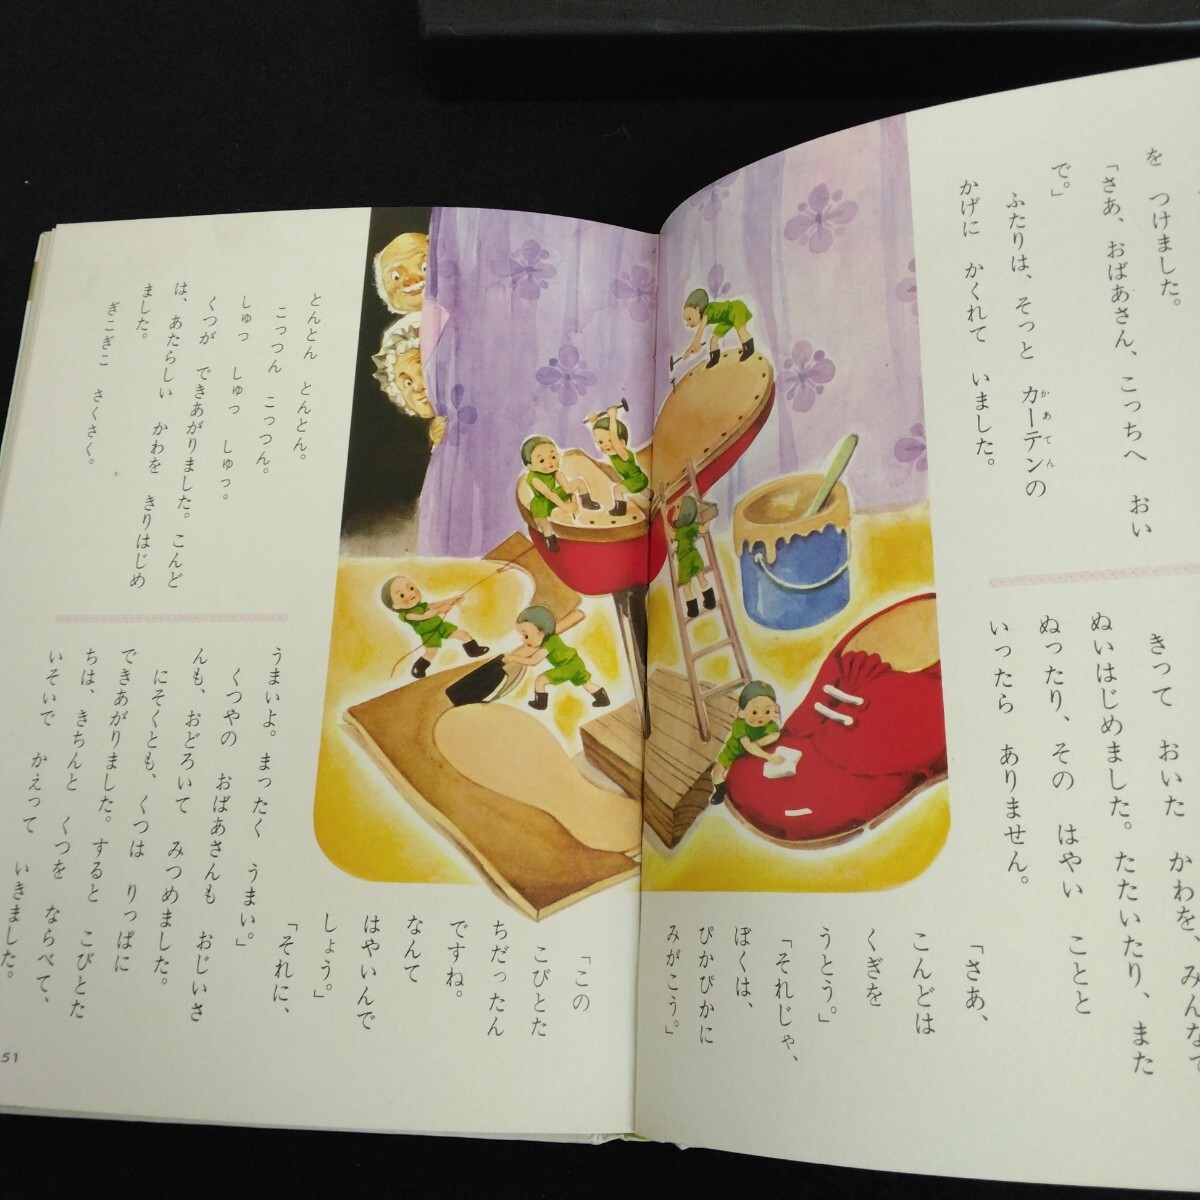 を つけました。
「さあ、おばあさん、こっちへ おい
で。」
ふたりは、そっと カーテンの
かあてん
かげに かくれて いました。
きって おいた かわを、みんなで
ぬいはじめました。たたいたり、また
ぬったり、その はやい ことと
いったら ありません。
「さあ、
こんどは
くぎを
うとう。」
「それじゃ、
ぼくは、
ぴかぴかに
みがこう。」
とんとん とんとん。
こっつん こっつん。
しゅっ しゅっ しゅっ。
くつが できあがりました。こんど
は、あたらしい かわを きりはじめ
ました。
ぎこぎこ さくさく。
「この
こびとた
ちだったん
ですね。
なんて
はやいんで
しょう。」
「それに、
うまいよ。まったく うまい。」
くつやの おばあさんも おじいさ
んも、おどろいて みつめました。
にそくとも、くつは りっぱに
できあがりました。すると こびとた
ちは、きちんと くつを ならべて、
いそいで かえって いきました。
51